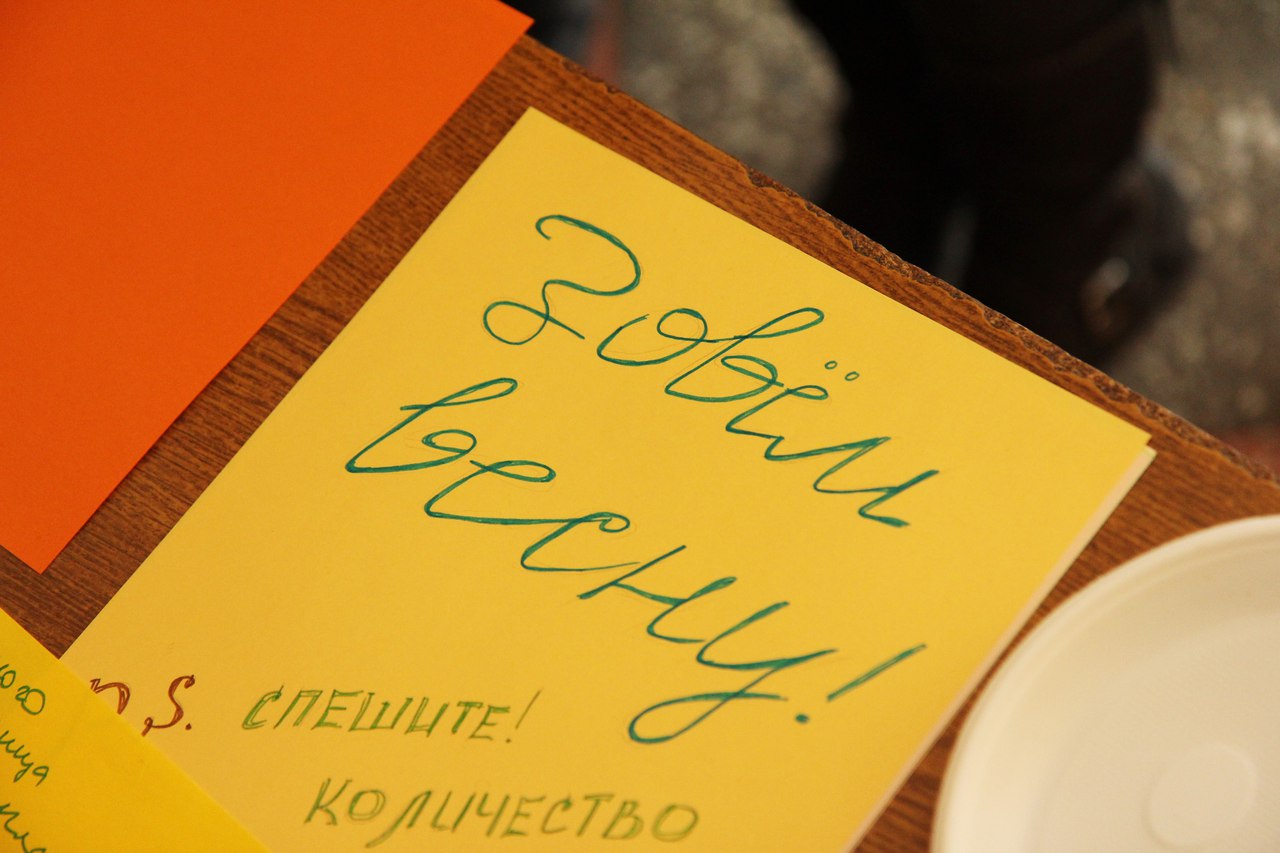 Зовём
весну!
P.S. СПЕШИТЕ!
КОЛИЧЕСТВО